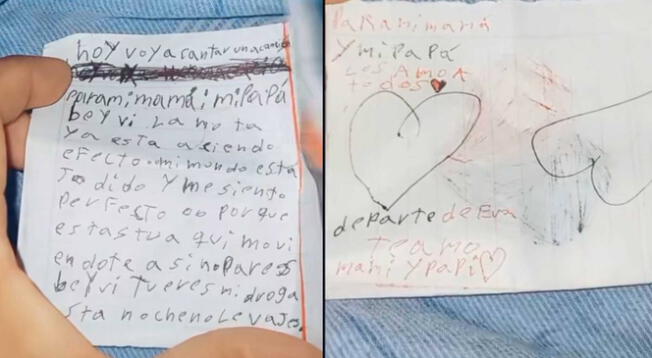 hoy voy a cantar una canción
para mi mamá i mi papá
beyvi la no ta
ya esta asiendo
efecto mi mundo esta
Jodido y me siento
perfesto oo porque
estas tu a qui movi
en dote a si no pares
beyvi tu eres mi droga
sta noche no le vajes.
Para mi mamá
y mi Papá
Les Amo A
todos
departe de Eva
te amo
mami y papi